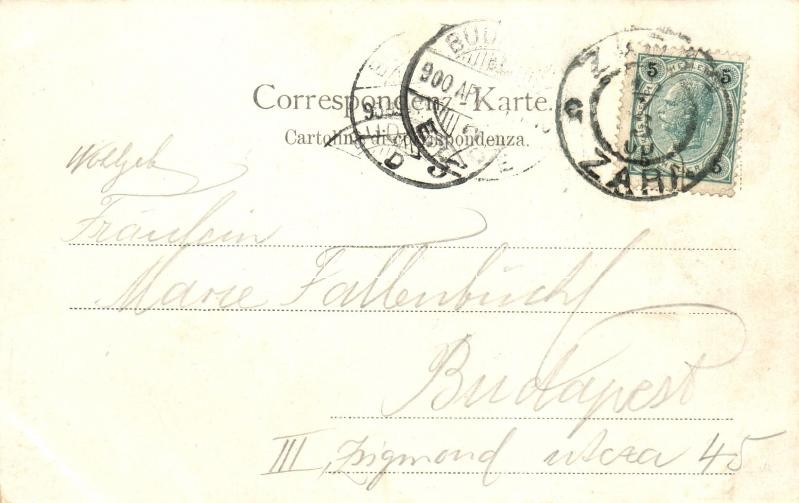 Correspondenz-Karte.
Cartolina di corrispondenza.
5 5
5
ZARA
BUDA
900 AP
Wohlgeb
Fräulein
Marie Fallenbüchl
Budapest
III, Zsigmond utcza 45